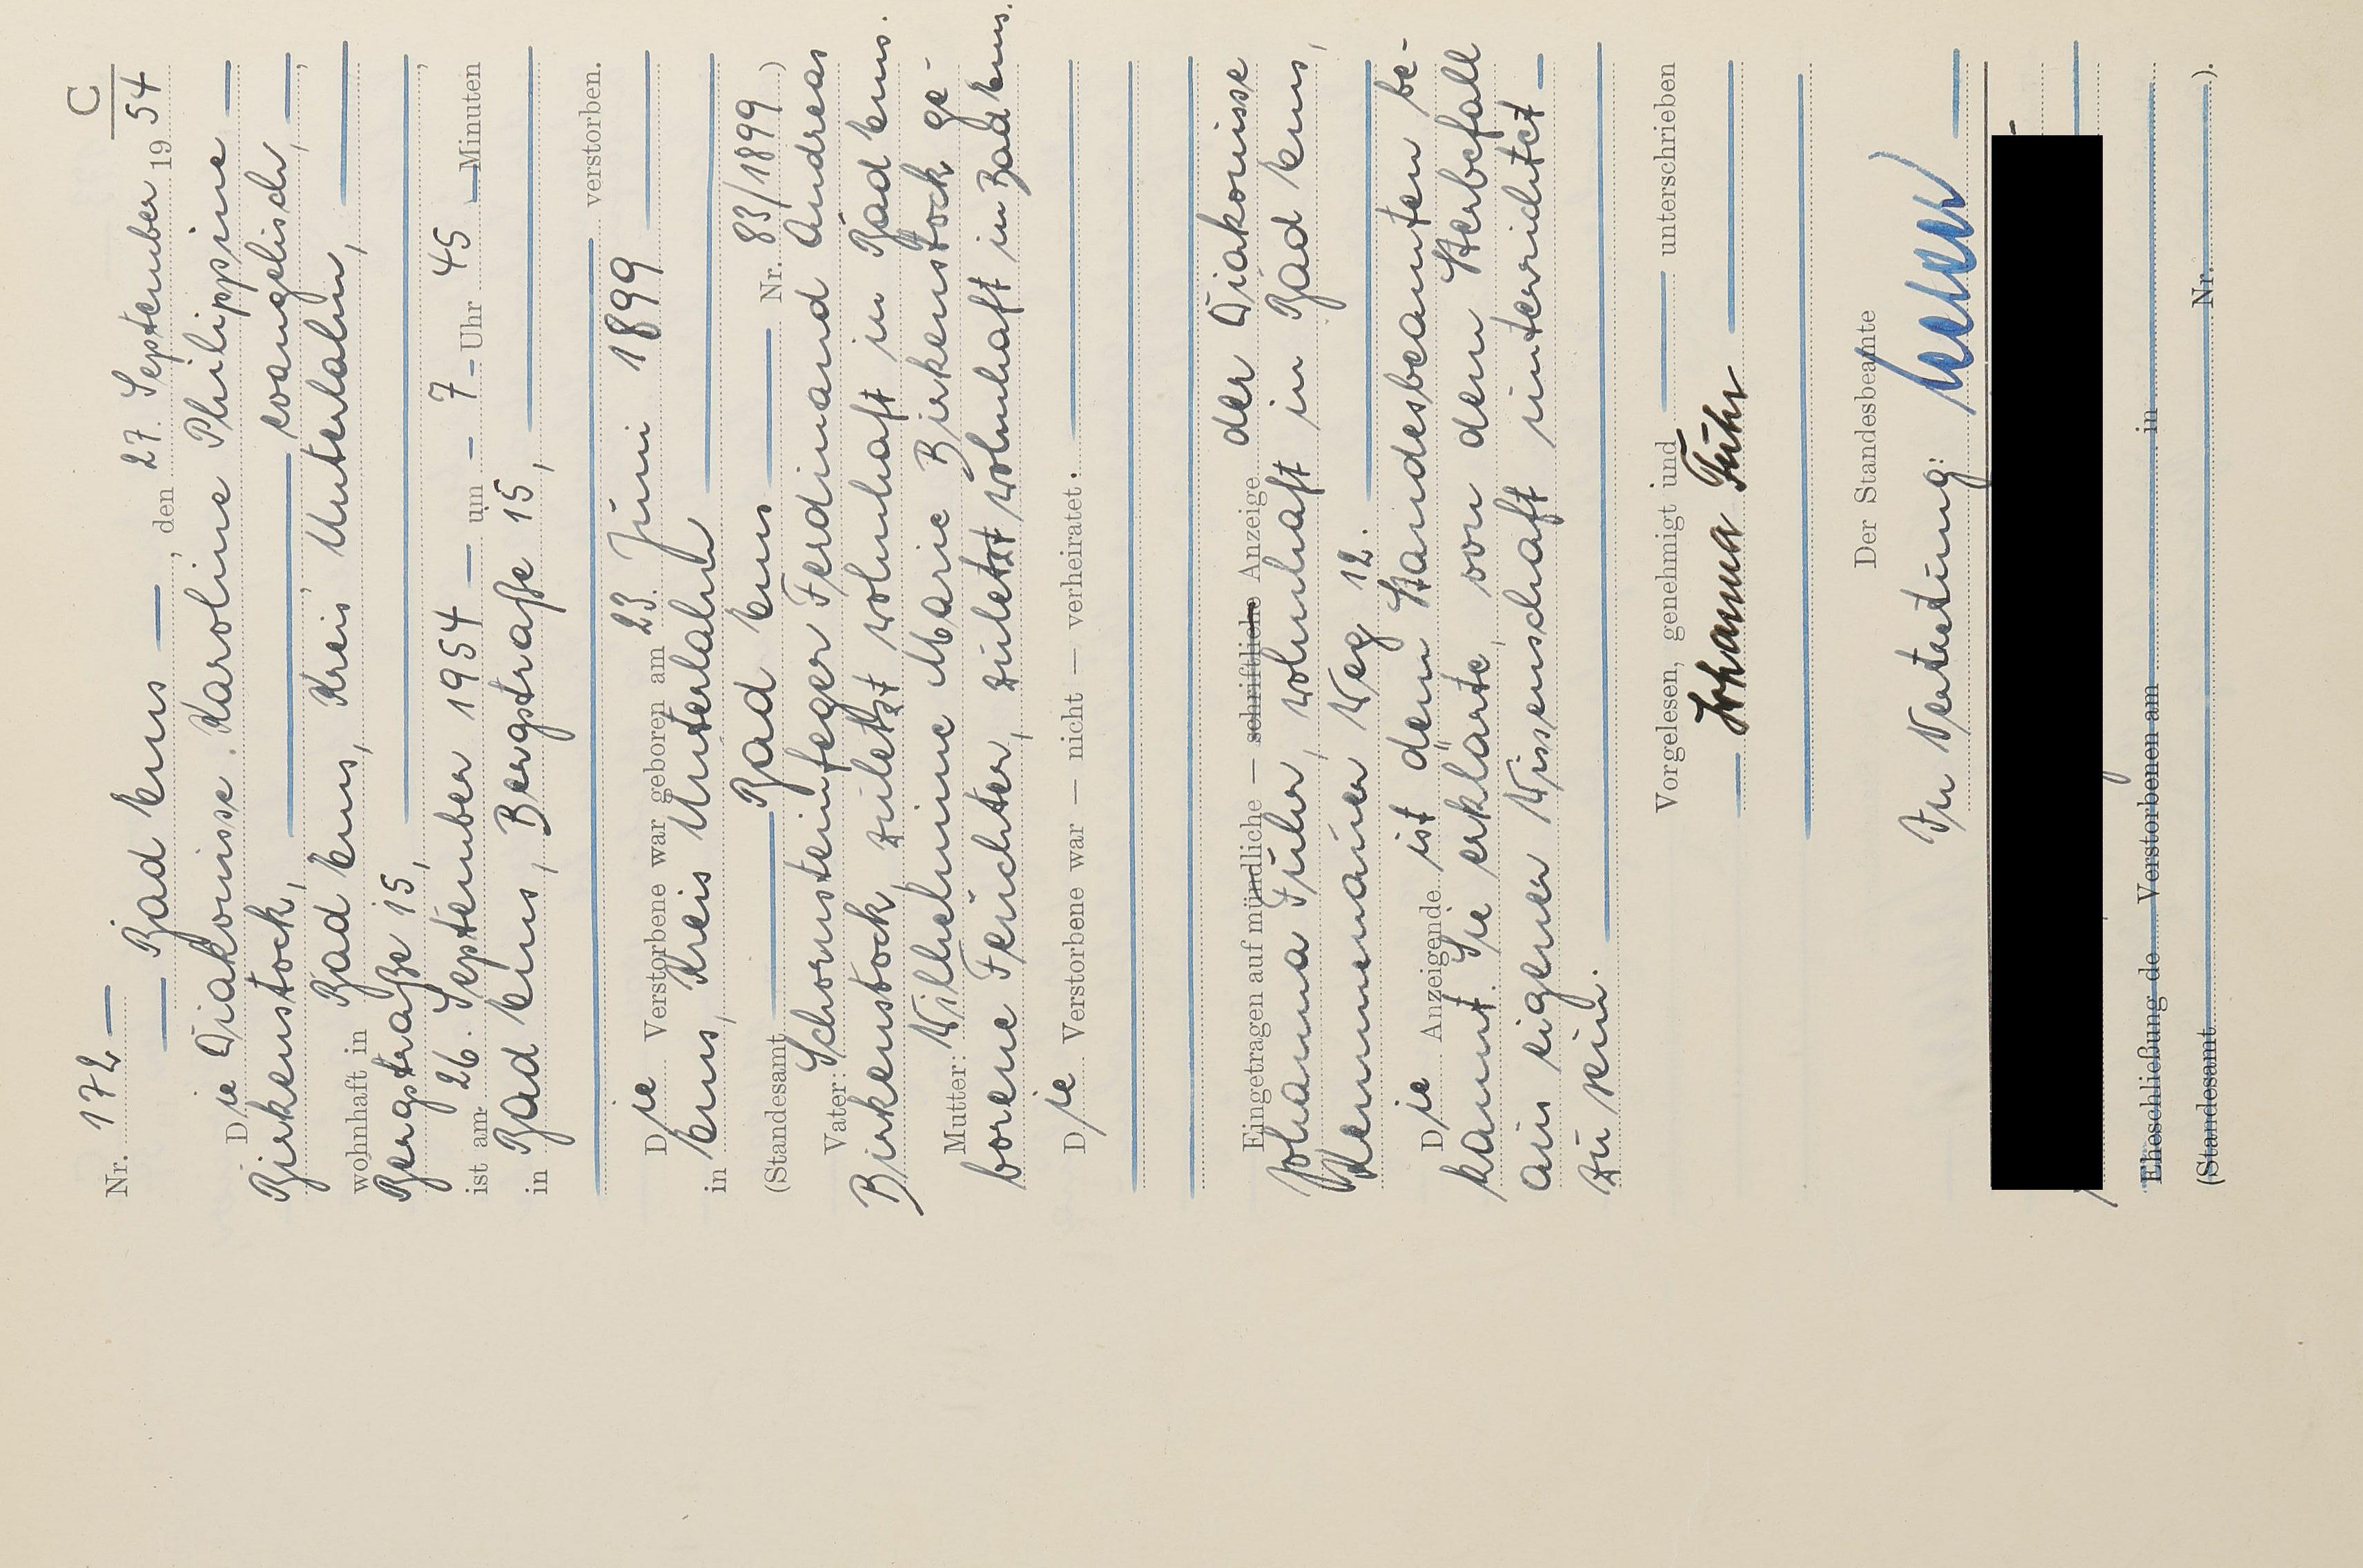 C
Nr. 172
Bad Ems , den 27. September 19 54
Die Diakonisse Karoline Philippine
Birkenstock, evangelisch,
wohnhaft in Bad Ems, Kreis Unterlahn,
Bergstraße 15,
ist am 26. September 1954 um 7 Uhr 45 Minuten
in Bad Ems, Bergstraße 15,
verstorben.
Die Verstorbene war geboren am 23. Juni 1899
in Ems, Kreis Unterlahn
(Standesamt Bad Ems Nr. 83/1899 )
Vater: Schornsteinfeger Ferdinand Andreas
Birkenstock, zuletzt wohnhaft in Bad Ems.
Mutter: Wilhelmine Marie Birkenstock ge-
borene Feuchter, zuletzt wohnhaft in Bad Ems.
Die Verstorbene war — nicht — verheiratet.
Eingetragen auf mündliche — schriftliche Anzeige der Diakonisse
Johanna Führ, wohnhaft in Bad Ems,
Kemmenauer Weg 12.
Die Anzeigende ist dem Standesbeamten be-
kannt. Sie erklärte, von dem Sterbefall
aus eigener Wissenschaft unterrichtet
zu sein.
Vorgelesen, genehmigt und unterschrieben
Johanna Führ
Der Standesbeamte
In Vertretung:
Eheschließung de Verstorbenen am in
(Standesamt Nr. ).